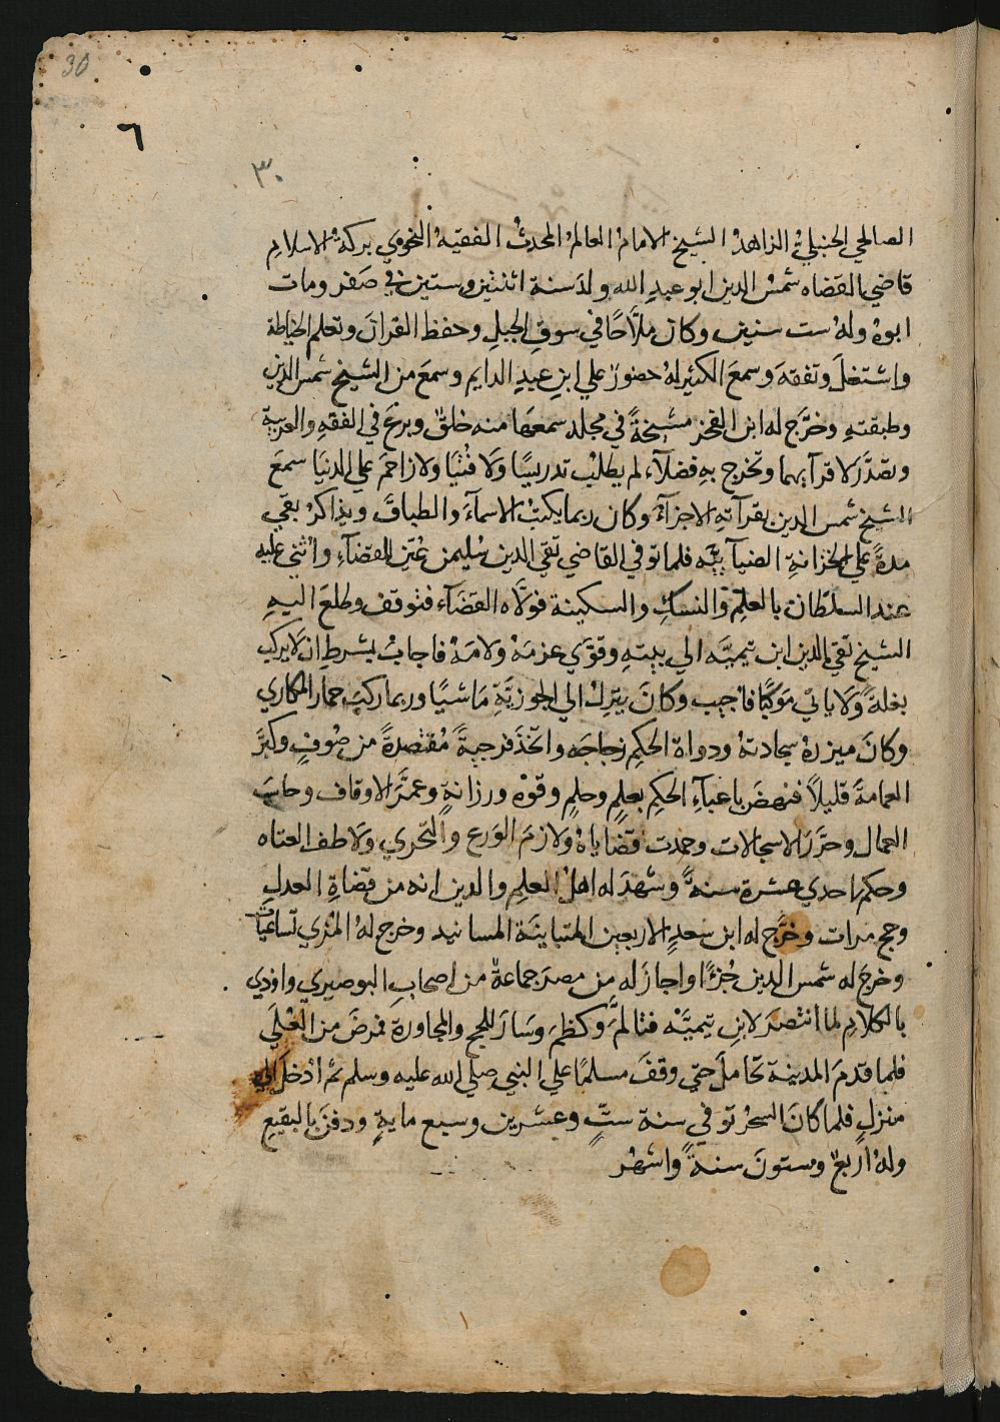 30
٦
٣٠
الصالحي الحنبلي الزاهد الشيخ الامام العالم المحدث الفقيه النحوي بركة الاسلام
قاضي القضاه شمس الدين ابو عبد الله ولد سنة اثنتين وستين في صفر ومات
ابوه وله ست سنين وكان ملاحًا في سوق الجبل وحفظ القران وتعلم الخياطة
واشتغل وتفقه وسمع الكثير له حضور علي ابن عبد الدايم وسمع من الشيخ شمس الدين
وطبقته وخرَّج له ابن الفخر مشيخةً في مجلد سمعها منه خلق وبرع في الفقه والعربية
وتصدَّر لاقرآيهما وتخرج به فضلآء لم يطلب تدريسًا ولا فتيا ولا زاحم علي الدنيا سمع
الشيخ شمس الدين بقرآته الاجزآء وكان ربما يكتب الاسمآء والطباق ويذاكر بقي
مدةً علي الخزانة الضيآييه فلما توفي القاضي تقي الدين سليمن عُيّن للقضآء واثني عليه
عند السلطان بالعلم والنسك والسكينة فولاه القضآء فتوقف وطلع اليه
الشيخ تقي الدين ابن تيميَّه الي بيته وقوي عزمه ولامه فاجاب بشرط ان لا يركب
بغلةً ولا ياتي موكبًا فاجيب وكان ينزل الي الجوزيَّة ماشيًا وربما ركب حمار المكاري
وكان ميزره سجادته ودواة الحكم زجاجه واتخذ فرجيةً مقتصدةً من صُوفٍ وكبَّر
العمامة قليلاً فنهض باعبآء الحكم بعلمٍ وحلمٍ وقوة ورزانةٍ وعمَّر الاوقاف وحاسب
العمال وحرَّر الاسجالات وحمدت قضاياه ولازم الورع والتحري ولاطف العتاه
وحكم احدي عشرة سنةً وشهد له اهل العلم والدين انه من قضاة العدل
وحج مرات وخرَّج له ابن سعدٍ الاربعين المتباينة المسانيد وخرج له المزي تساعيات
وخرج له شمس الدين جُزءًا واجاز له من مصر جماعة من اصحاب البوصيري واوذي
بالكلام لما انتصر لابن تيميَّه فتالَّم وكظم وسار للحج والمجاورة فمرض من العُلَي
فلما قدم المدينة تحامل حتي وقف مسلمًا علي النبي صلي الله عليه وسلم ثم ادخل الي
منزلٍ فلما كان السحر توفي سنة ستٍّ وعشرين وسبع مايةٍ ودفن بالبقيع
وله اربعٌ وستون سنةً واشهر